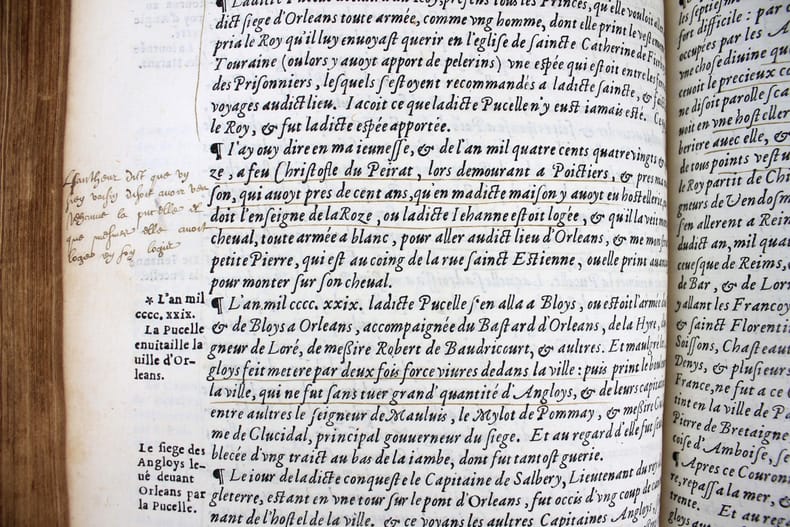 ¶ Ladicte Pucelle
tous les Princes, qu'elle vouloit alle
dict siege d'Orleans toute armée, comme vng homme, dont elle print le vestem
pria le Roy qu'il luy enuoyast querir en l'eglise de saincte Catherine de Fier
Touraine (ou lors y auoyt apport de pelerins) vne espée qui estoit entre les fer
des Prisonniers, lesquels s'estoyent recommandés a ladicte saincte, & f
voyages audict lieu. Iacoit ce que ladicte Pucelle n'y eust iamais esté. Ce
le Roy, & fut ladicte espée apportée.
¶ I'ay ouy dire en ma ieunesse, & de l'an mil quatre cents quatre vingts &
ze, a feu Christofle du Peirat, lors demourant a Poictiers, & pres ma
son, qui auoyt pres de cent ans, qu'en madicte maison y auoyt eu hostellerie,
doit l'enseigne de la Roze, ou ladicte Iehanne estoit logée, & qu'il la veit mo
cheual, toute armée a blanc, pour aller audict lieu d'Orleans, & me mon
petite Pierre, qui est au coing de la rue sainct Estienne, ou elle print au
pour monter sur son cheual.
¶ L'an mil cccc. xxix. ladicte Pucelle s'en alla a Bloys, ou estoit l'armée du
& de Bloys a Orleans, accompaignée du Bastard d'Orleans, de la Hyre,
gneur de Loré, de meßire Robert de Baudricourt, & aultres. Et maulgre
gloys feit metere par deux fois force viures dedans la ville: puis print le boule
la ville, qui ne fut sans tuer grand' quantité d'Angloys, & de leurs capitai
entre aultres le seigneur de Mauluis, le Mylot de Pommay, & meßire Gu
me de Clucidal, principal gouuerneur du siege. Et au regard d'elle fut seu
blecée d'vng traict au bas de la iambe, dont fut tantost guerie.
¶ Le iour de ladicte conqueste le Capitaine de Salbery, Lieutenant du roy d
gleterre, estant en vne tour sur le pont d'Orleans, fut occis d'vng coup de can
nant de l'hostel de la ville. & ce voyans les aultres Capitaines Angloys,
Lautheur dit que
la pucelle
que elle auoit
* L'an mil
cccc. xxix.
La Pucelle
enuitaille la
uille d'Or-
leans.
Le siege des
Angloys le-
ué deuant
Orleans par
la Pucelle.
les septiesme
fort difficile: par
occupées par les A
vne chose diuine qu
ceuoit le precieux co
ne disoit parolle sca
uoit en vne hostelle
beriere auec elle, &
de tous points vestu
le Roy partit de Chi
gneurs de Vendosm
s'en allerent a Rein
dudict an, mil qua
ceuesque de Reims,
de Bar, & de Lor
y allant les Francoy
& sainct Florentin
Soissons, Chasteau
Denys, & plusieurs
France, ne fut a ce
tint en la ville de Pa
Pierre de Bretaigne
toise d'Amboise, se
¶ Apres ce Couron
re, repassa la mer, &
trente. Et au
glois auoyent